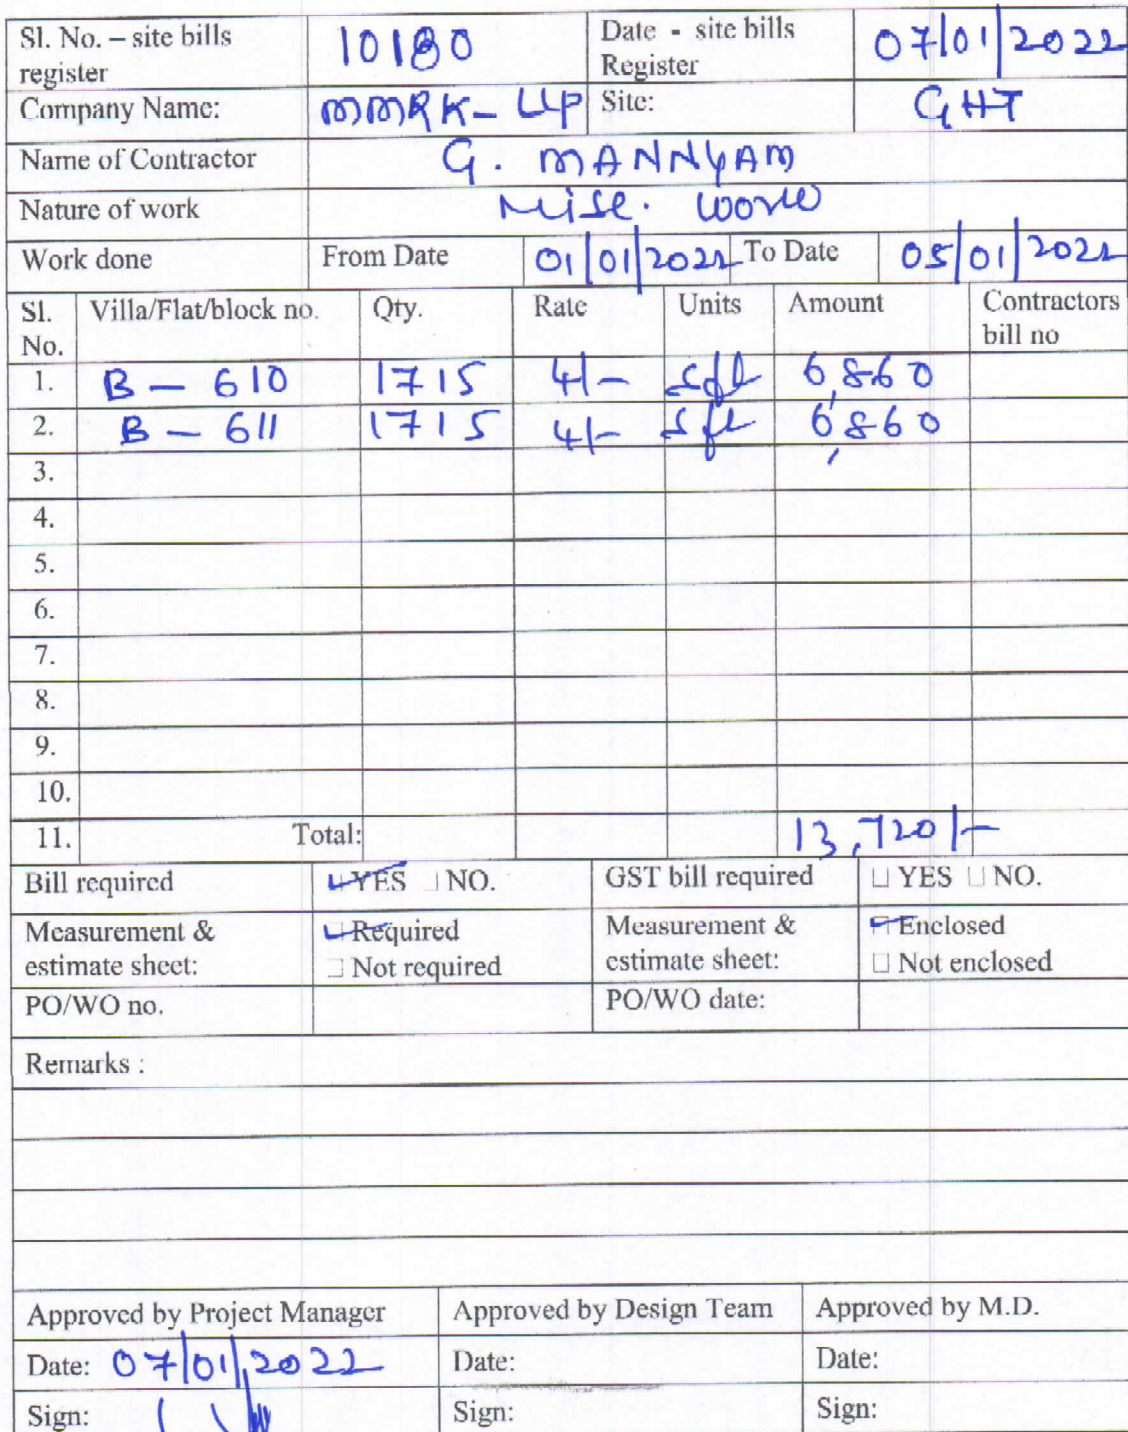 Sl. No. – site bills register 10180 Date - site bills Register 07/01/2022
Company Name: MMRK-LLP Site: GHT
Name of Contractor G. MANNYAM
Nature of work Misc. work
Work done From Date 01/01/2022 To Date 05/01/2022
Sl. No. Villa/Flat/block no. Qty. Rate Units Amount Contractors bill no
1. B - 610 1715 4/- sft 6,860
2. B - 611 1715 4/- sft 6,860
3.
4.
5.
6.
7.
8.
9.
10.
11. Total: 13,720/-
Bill required YES NO. GST bill required YES NO.
Measurement & estimate sheet: Required Not required Measurement & estimate sheet: Enclosed Not enclosed
PO/WO no. PO/WO date:
Remarks :
Approved by Project Manager Approved by Design Team Approved by M.D.
Date: 07/01/2022 Date: Date:
Sign: Sign: Sign: